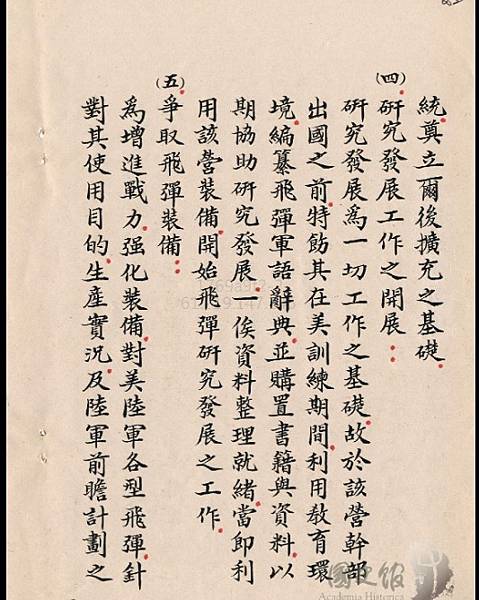 統,奠立爾後擴充之基礎.
(四)研究發展工作之開展:
研究發展為一切工作之基礎,故於該營幹部
出國之前,特飭其在美訓練期間,利用教育環
境,編纂飛彈軍語辭典,並購置書籍與資料,以
期協助研究發展,一俟資料整理就緒,當即利
用該營裝備,開始飛彈研究發展之工作.
(五)爭取飛彈裝備:
為增進戰力,强化裝備,對美陸軍各型飛彈,針
對其使用目的,生產實況,及陸軍前瞻計劃之
國史館
Academia Historica